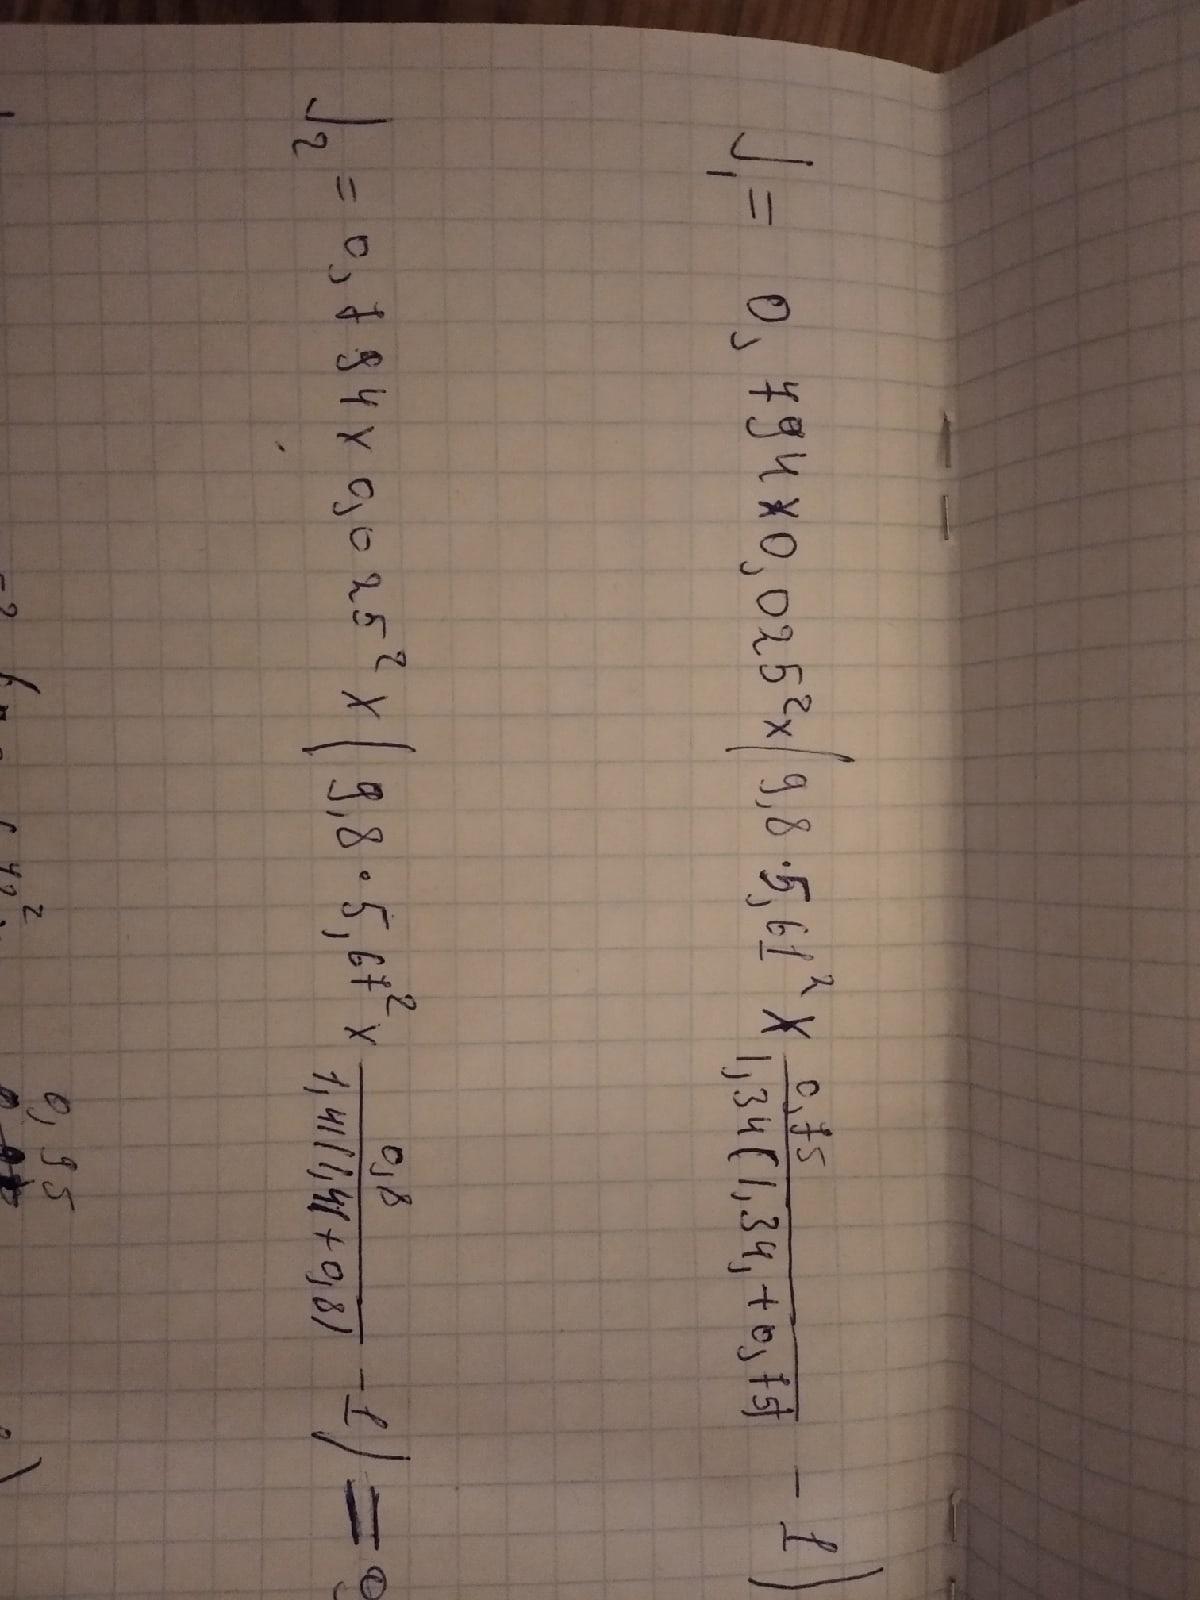 J₁ = 0,794 x 0,025² x (9,8 · 5,61² x 0,75 / 1,34(1,34, + 0,75) - 1)
J₂ = 0,794 x 0,025² x (9,8 · 5,67² x 0,8 / 1,41(1,41 + 0,8) - 1) = 0
0,95